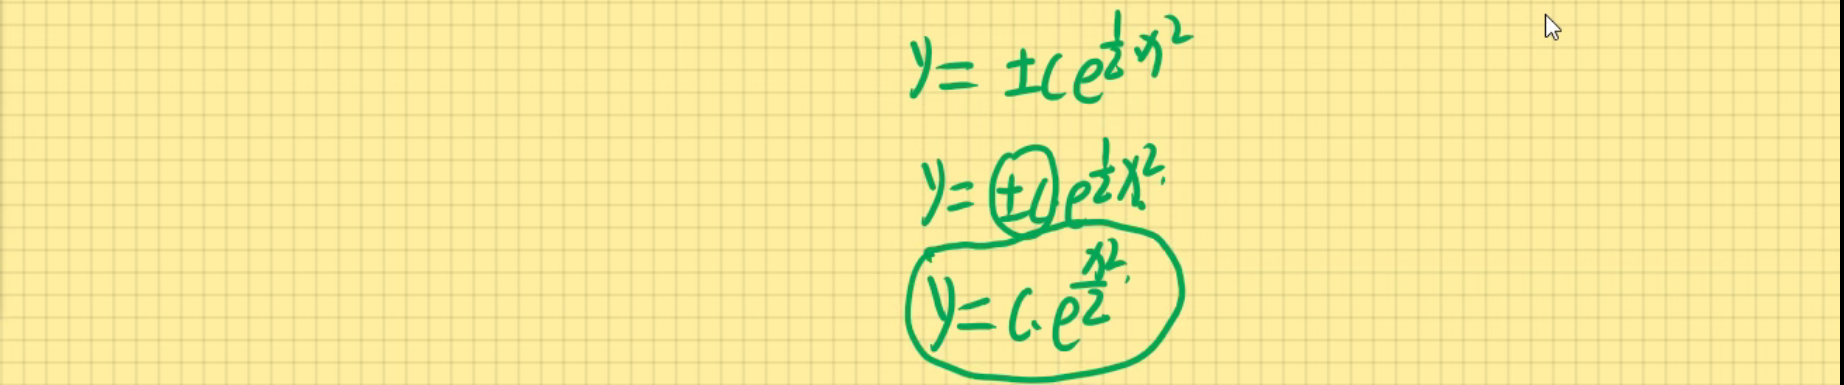 y = ±c e^{\frac{1}{2}x^2}
y = ±c e^{\frac{1}{2}x^2}
y = c · e^{\frac{x^2}{2}}